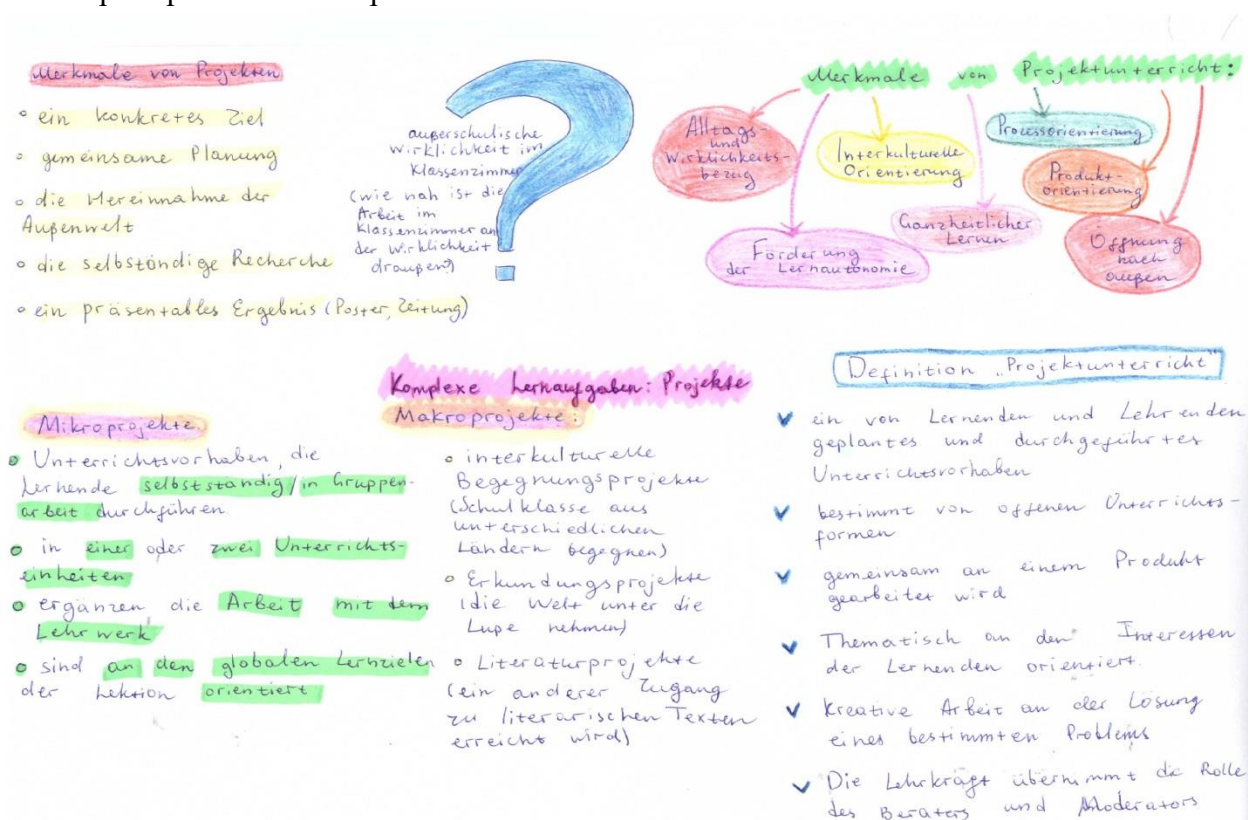 Merkmale von Projekten
ein konkretes Ziel
gemeinsame Planung
die Hereinnahme der
Außenwelt
die selbständige Recherche
ein präsentables Ergebnis (Poster, Zeitung)
außerschulische
Wirklichkeit im
Klassenzimmer
(wie nah ist die
Arbeit im
Klassenzimmer an
der Wirklichkeit
draußen)
Merkmale von Projektunterricht:
Alltags-
und
Wirklichkeits-
bezug
Förderung
der Lernautonomie
Interkulturelle
Orientierung
Ganzheitlicher
Lernen
Processorientierung
Produkt-
orientierung
Öffnung
nach
außen
Komplexe Lernaufgaben: Projekte
Mikroprojekte
Unterrichtsvorhaben, die
Lernende selbstständig/in Gruppen-
arbeit durchführen
in einer oder zwei Unterrichts-
einheiten
ergänzen die Arbeit mit dem
Lehrwerk
sind an den globalen Lernzielen
der Lektion orientiert
Makroprojekte:
interkulturelle
Begegnungsprojekte
(Schulklasse aus
unterschiedlichen
Ländern begegnen)
Erkundungsprojekte
(die Welt unter die
Lupe nehmen)
Literaturprojekte
(ein anderer Zugang
zu literarischen Texten
erreicht wird)
Definition „Projektunterricht"
ein von Lernenden und Lehrenden
geplantes und durchgeführtes
Unterrichtsvorhaben
bestimmt von offenen Unterrichts-
formen
gemeinsam an einem Produkt
gearbeitet wird
Thematisch an den Interessen
der Lernenden orientiert.
Kreative Arbeit an der Lösung
eines bestimmten Problems
Die Lehrkraft übernimmt die Rolle
des Beraters und Moderators